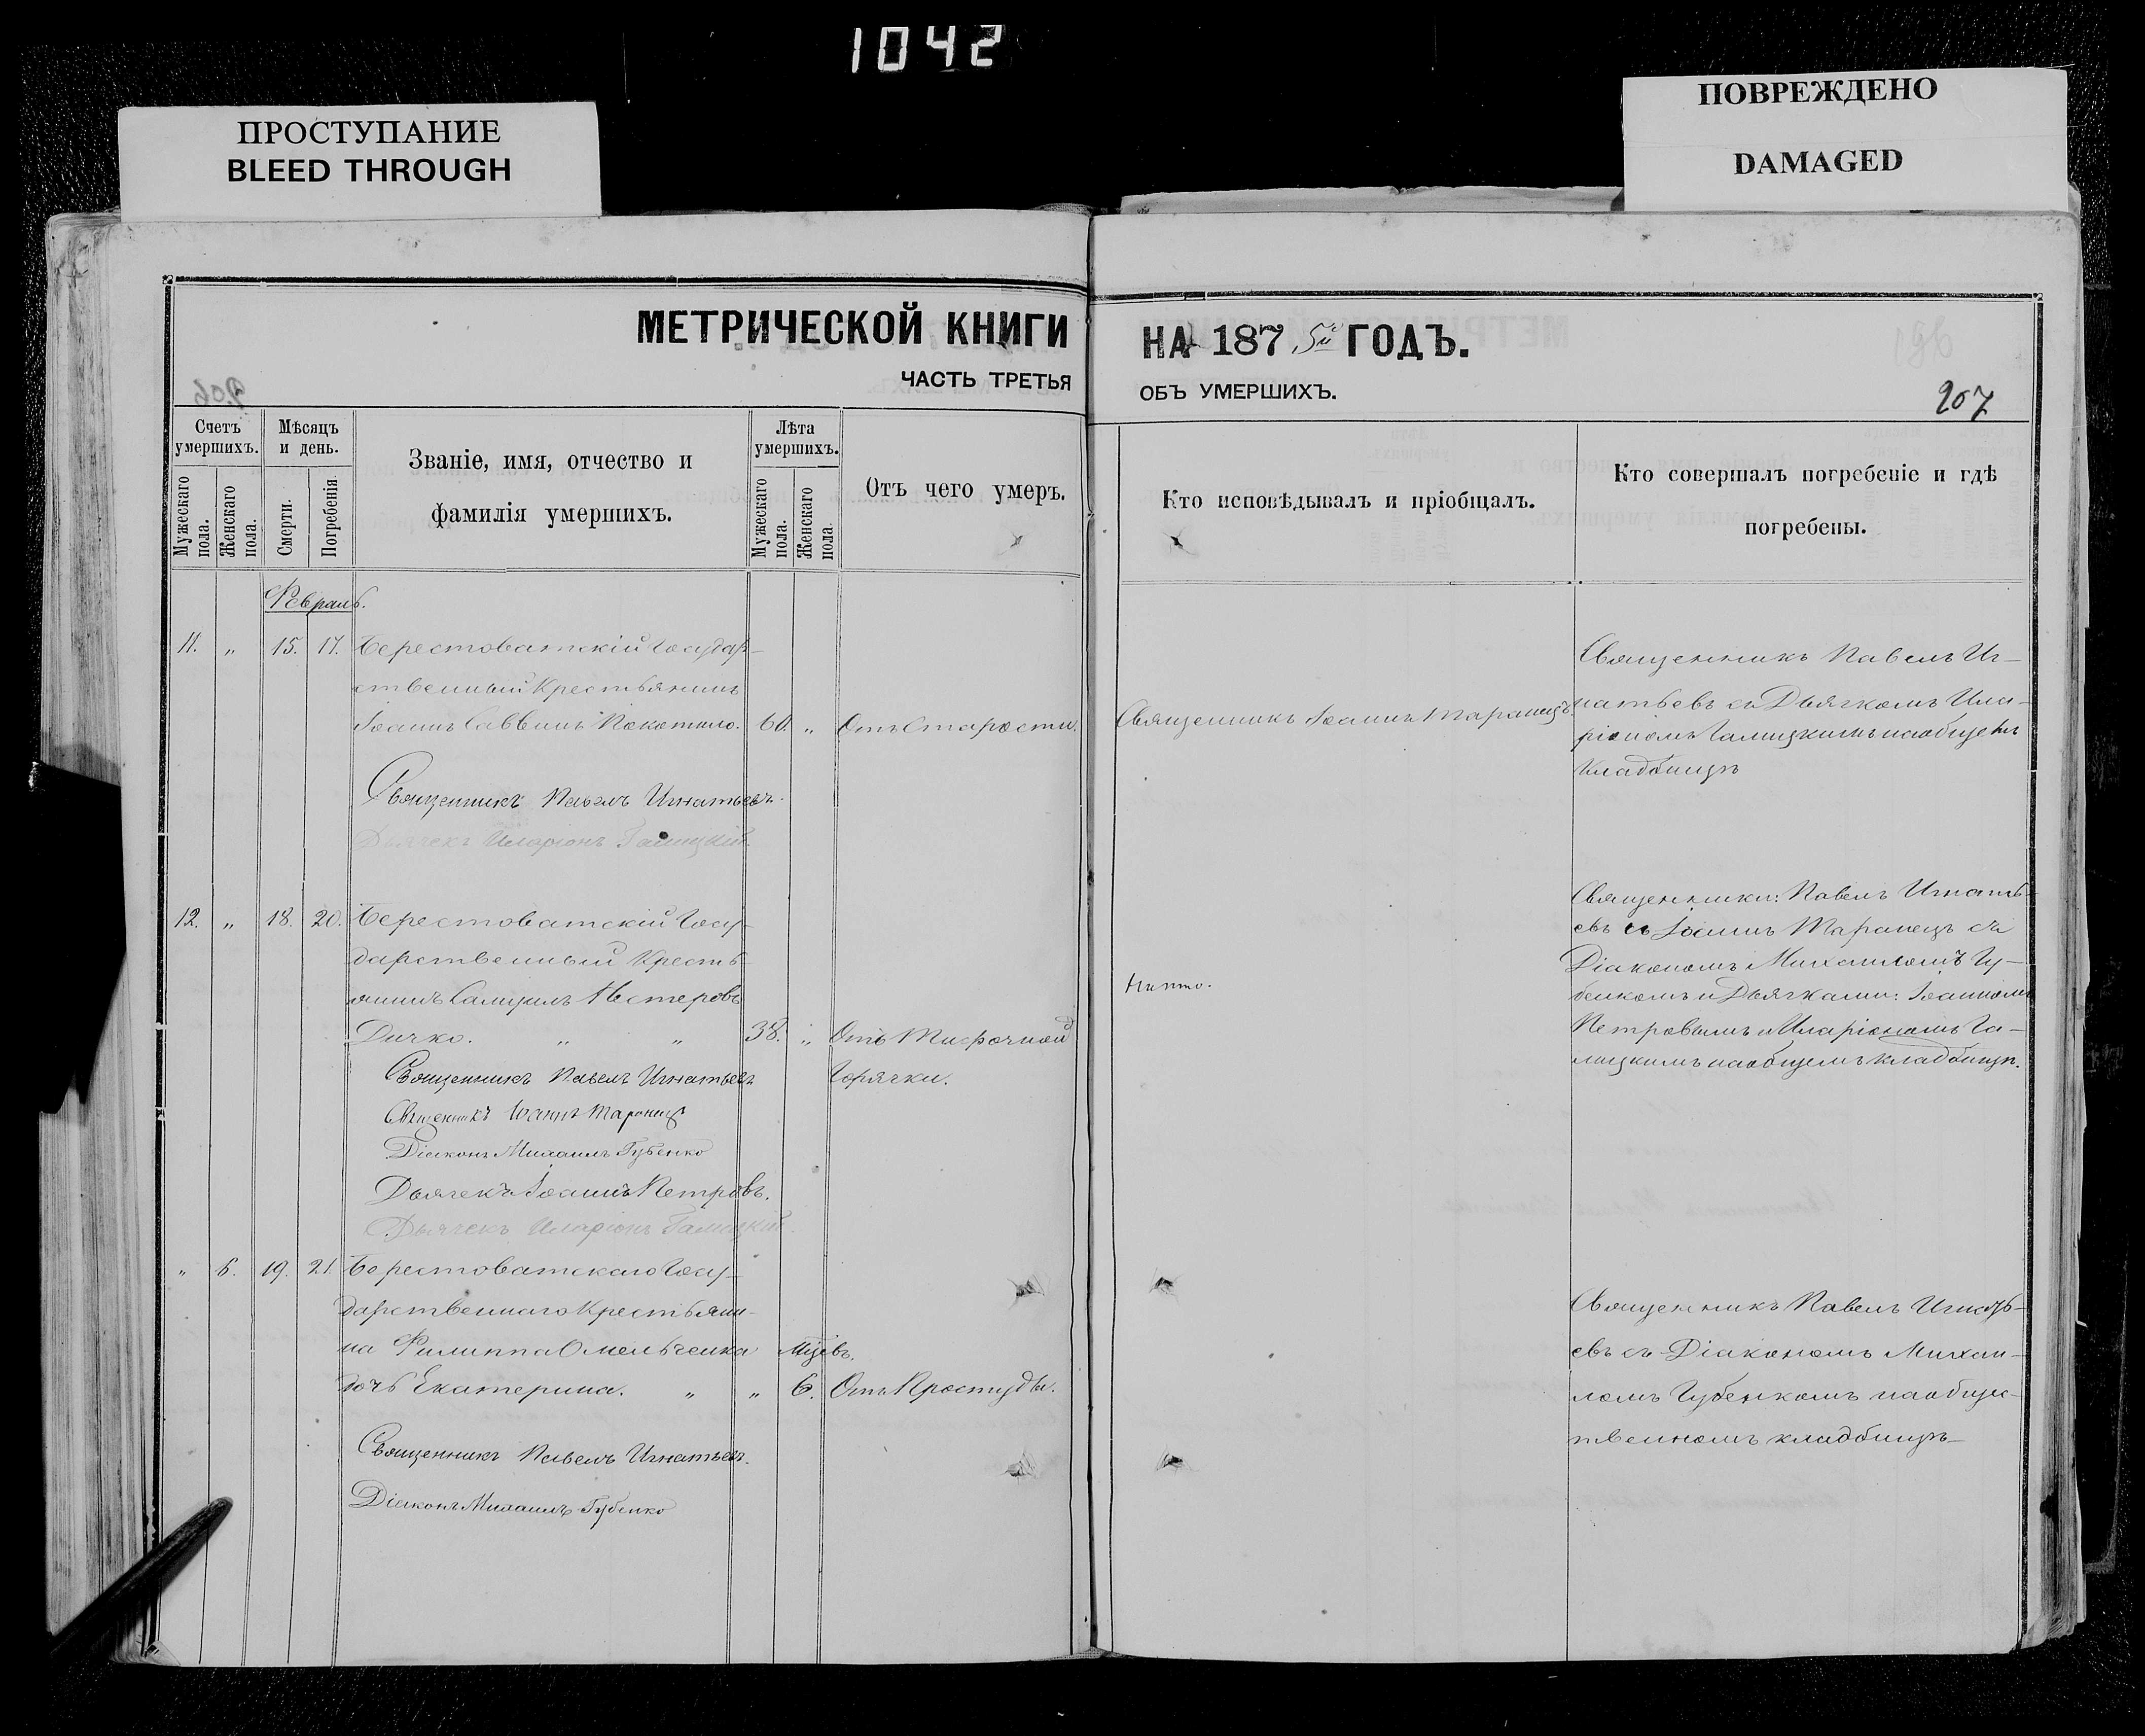 1042
ПРОСТУПАНИЕ
BLEED THROUGH
ПОВРЕЖДЕНО
DAMAGED
МЕТРИЧЕСКОЙ КНИГИ
НА 1875й ГОДЪ.
ЧАСТЬ ТРЕТЬЯ
ОБЪ УМЕРШИХЪ.
207
Счетъ умершихъ.
Мужескаго пола.
Женскаго пола.
Мѣсяцъ и день.
Смерти.
Погребенія.
Званіе, имя, отчество и
фамилія умершихъ.
Лѣта умершихъ.
Мужескаго пола.
Женскаго пола.
Отъ чего умеръ.
Кто исповѣдывалъ и пріобщалъ.
Кто совершалъ погребеніе и гдѣ
погребены.
Февраль.
11. " 15. 17. Берестоватскій Государ-
ственный Крестьянинъ
Іоаннъ Саввинъ Покотило. 60. " Отъ Старости.
Священникъ Іоаннъ Таранецъ.
Священникъ Павелъ Иг-
натьевъ съ Дьячкомъ Ила-
ріономъ Галицкимъ на общемъ
Кладбищѣ
Священникъ Павелъ Игнатьевъ.
Дьячекъ Иларіонъ Галицкій.
12. " 18. 20. Берестоватскій Госу-
дарственный Кресть-
янинъ Самуилъ Нестеровъ
Дичко. " " 38. " Отъ Тифочной
Горячки.
Никто.
Священники: Павелъ Игнать-
евъ и Іоаннъ Таранецъ съ
Діакономъ Михаиломъ Гу-
бенкомъ и Дьячками: Іоанномъ
Петровымъ и Иларіономъ Га-
лицкимъ на общемъ кладбищѣ.
Священникъ Павелъ Игнатьевъ
Священникъ Іоаннъ Таранецъ
Діаконъ Михаилъ Губенко
Дьячекъ Іоаннъ Петровъ.
Дьячекъ Иларіонъ Галицкій.
" 6. 19. 21. Берестоватскаго Госу-
дарственнаго Крестьяни-
на Филиппа Омельченка
дочь Екатерина. " " 6. Отъ Простуды.
Священникъ Павелъ Игнать-
евъ съ Діакономъ Михаи-
ломъ Губенкомъ на общес-
твенномъ кладбищѣ
Священникъ Павелъ Игнатьевъ.
Діаконъ Михаилъ Губенко